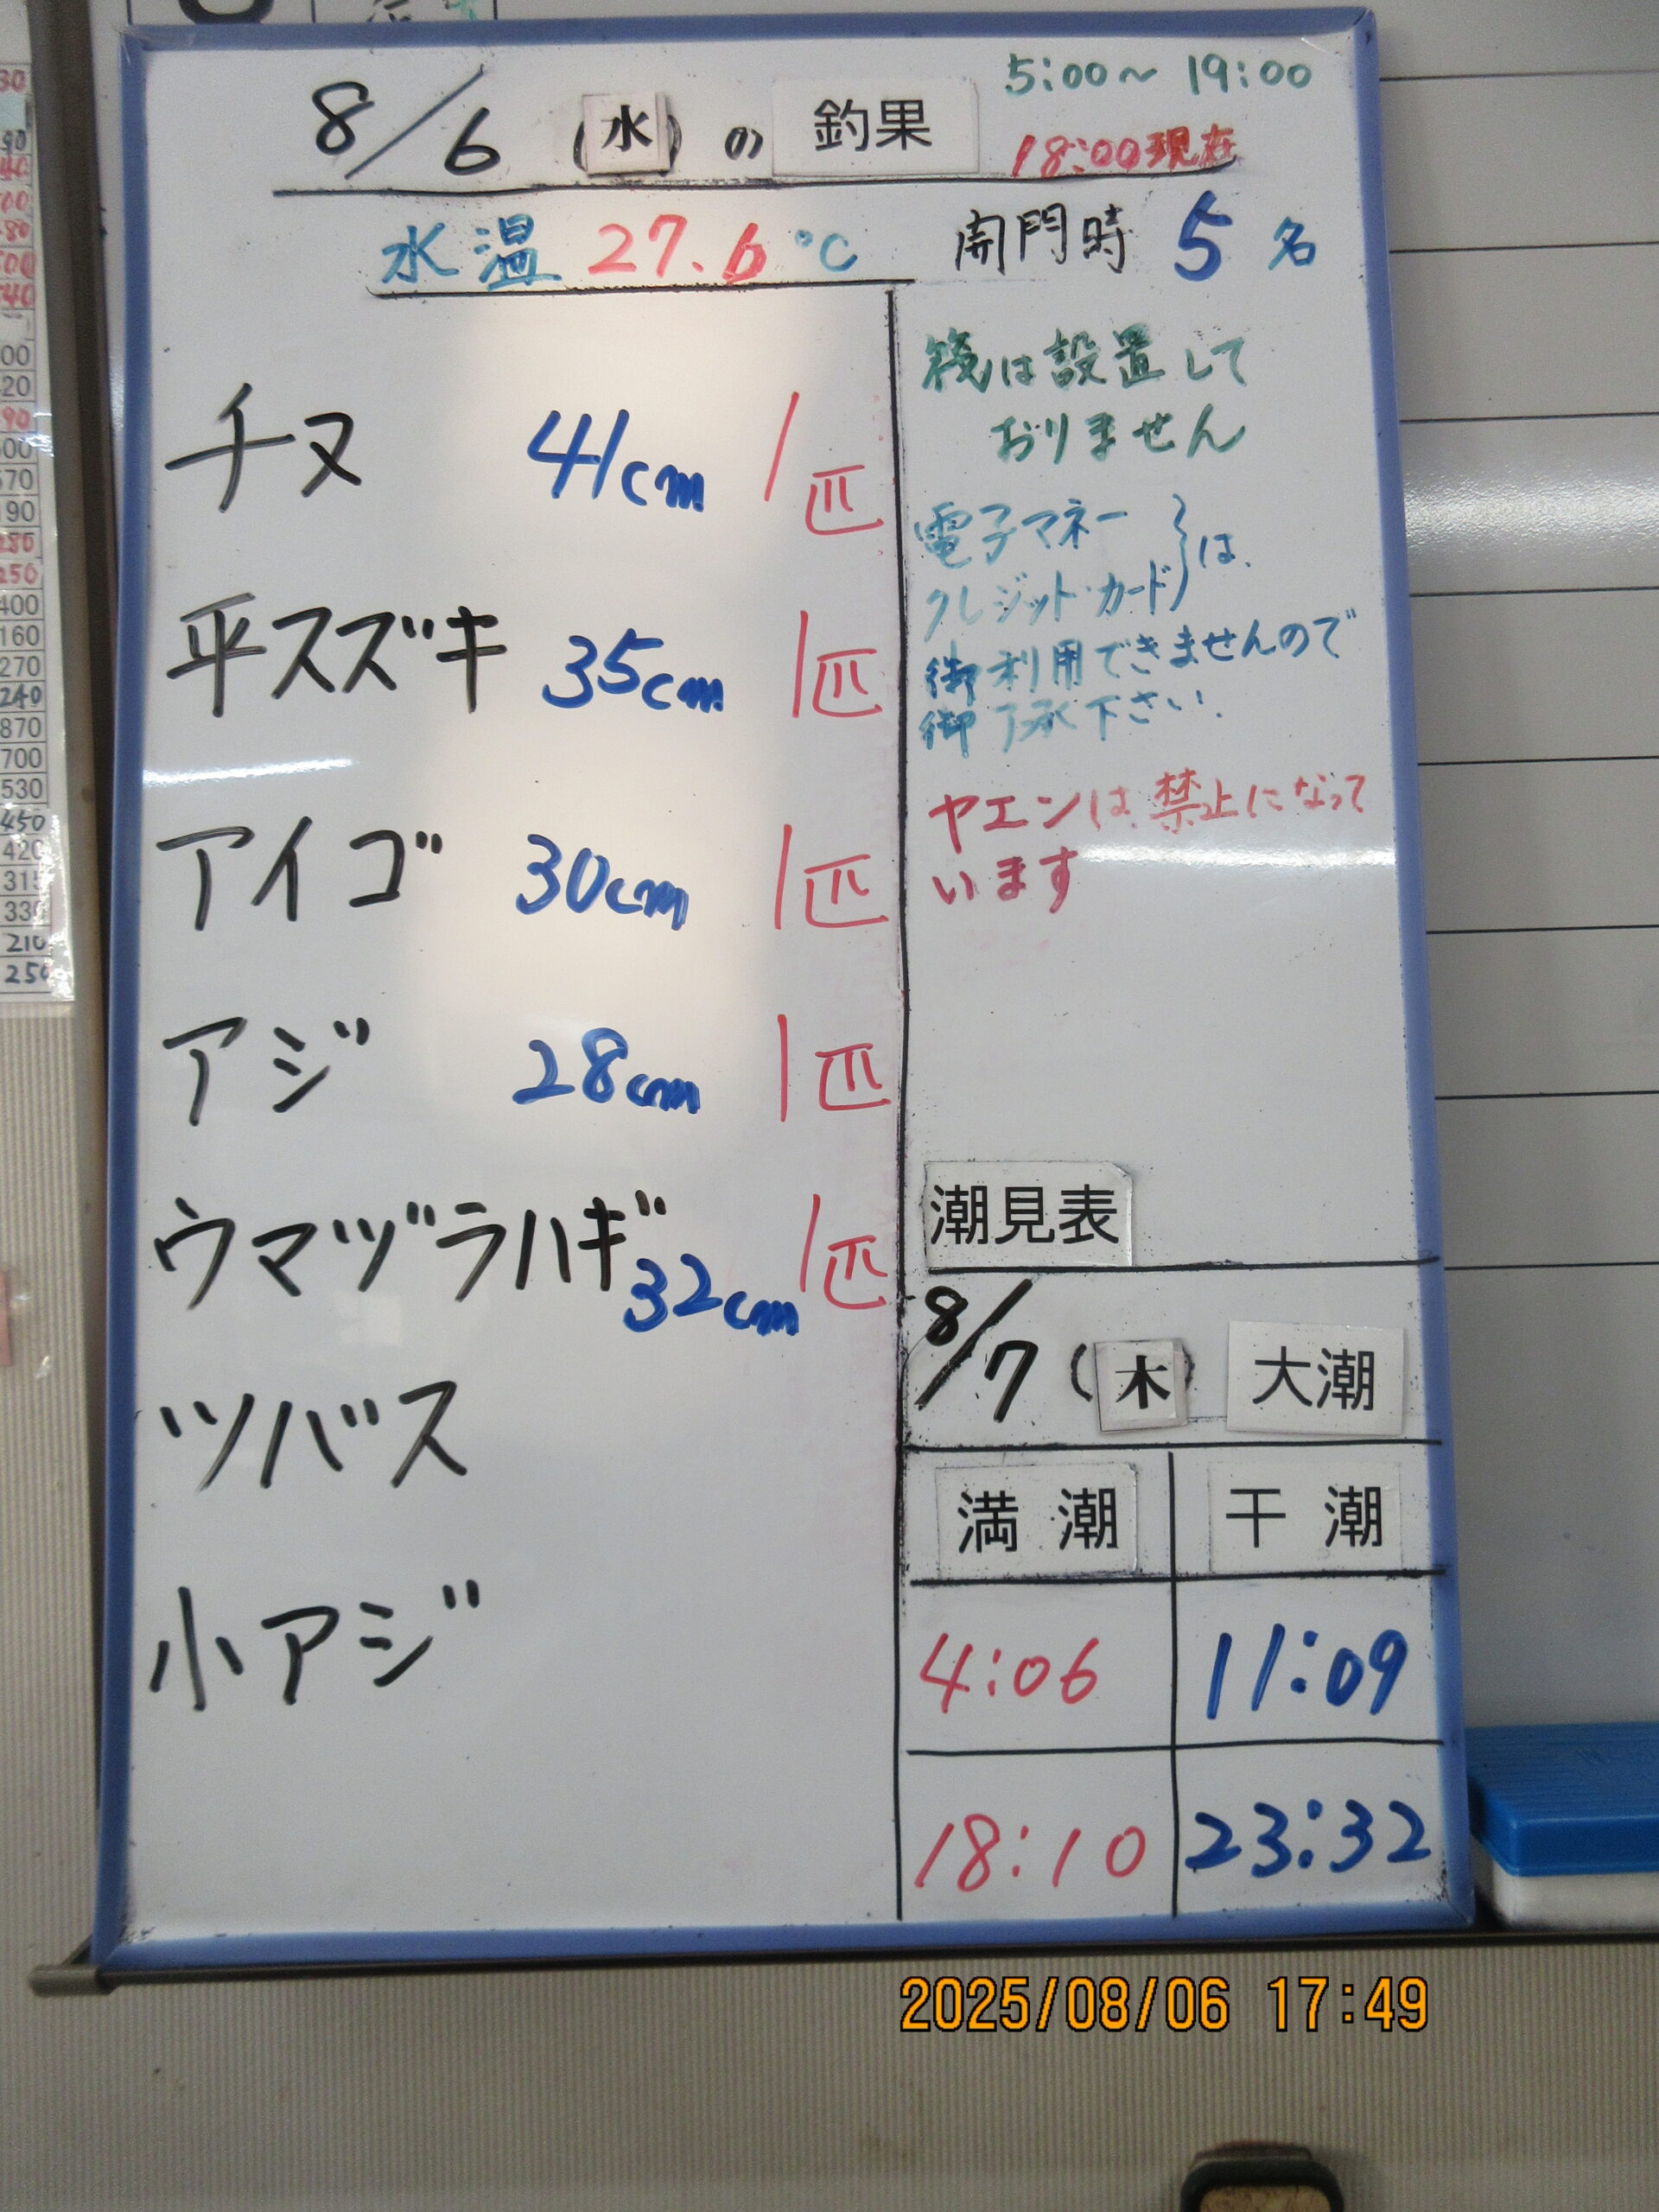 8/6 (水) の 釣果
5:00〜19:00
18:00現在
水温 27.6℃
開門時 5名
チヌ 41cm 1匹
平スズキ 35cm 1匹
アイゴ 30cm 1匹
アジ 28cm 1匹
ウマヅラハギ 32cm 1匹
ツバス
小アジ
筏は設置して
おりません
電子マネー
クレジット・カード}は、
御利用できませんので
御了承下さい.
ヤエンは、禁止になって
います
潮見表
8/7 (木) 大潮
満潮 干潮
4:06 11:09
18:10 23:32
2025/08/06 17:49